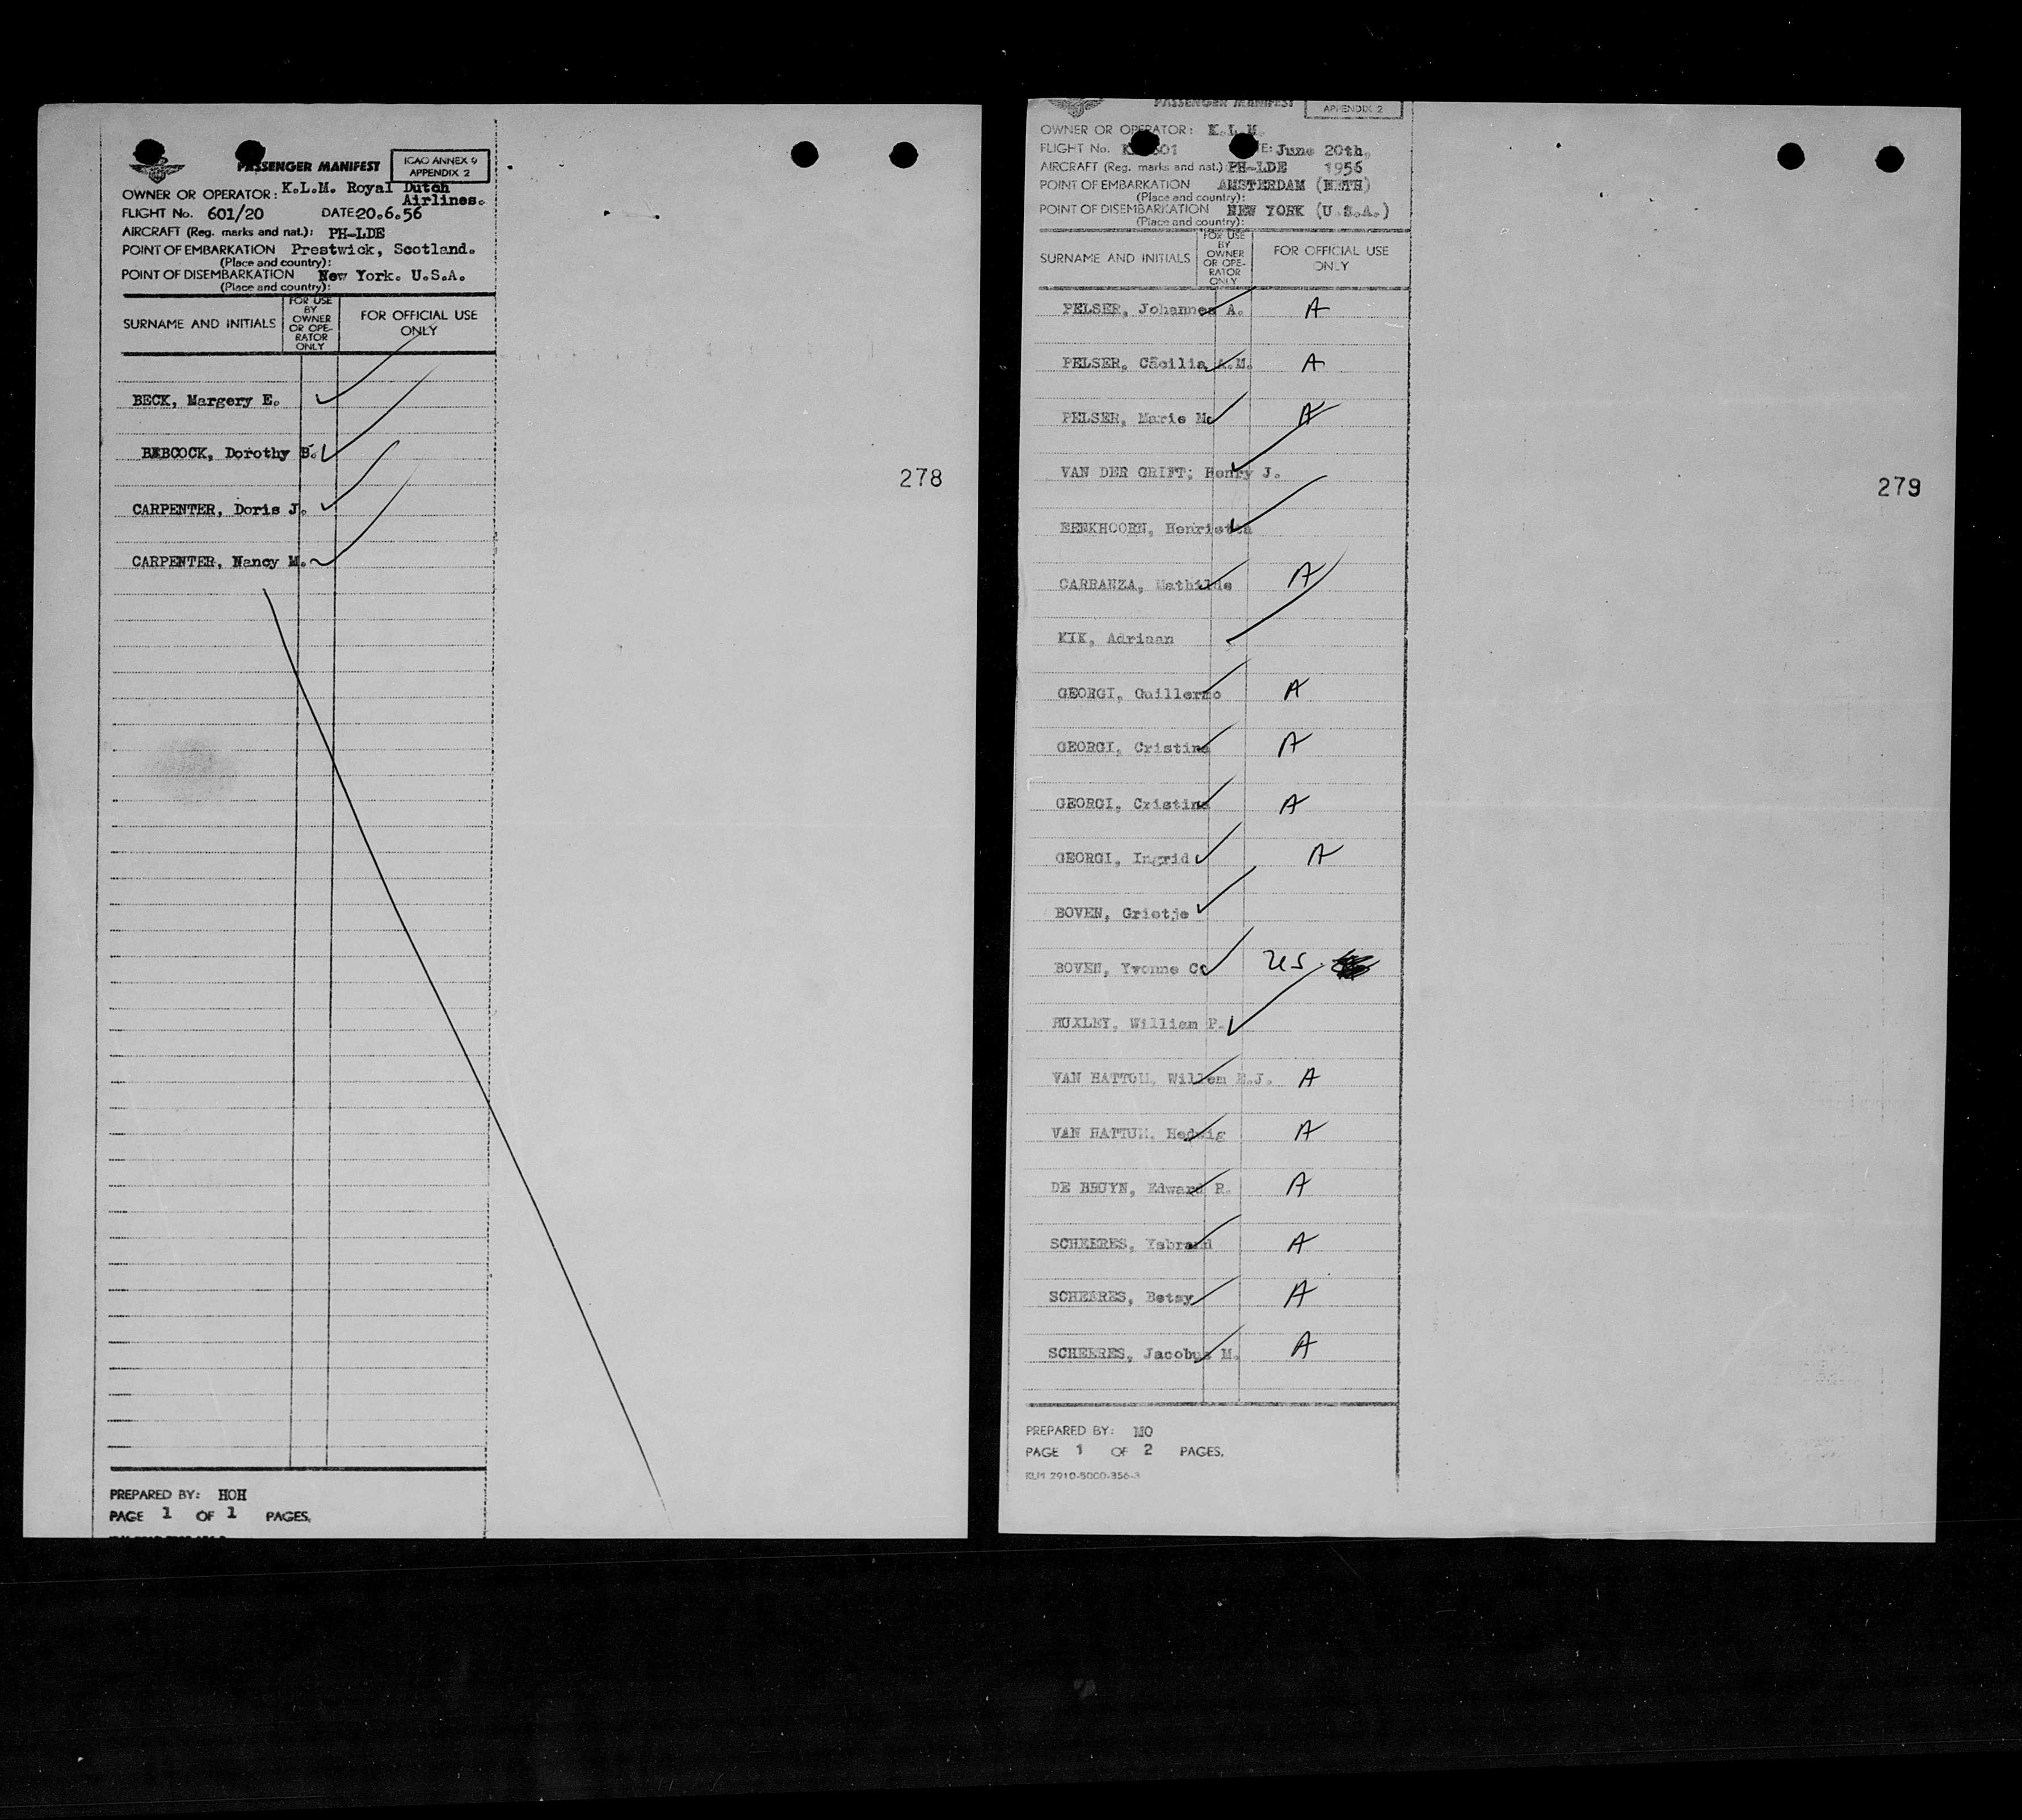 PASSENGER MANIFEST
ICAO ANNEX 9
APPENDIX 2
OWNER OR OPERATOR: K.L.M. Royal Dutch
Airlines.
FLIGHT No. 601/20 DATE 20.6.56
AIRCRAFT (Reg. marks and nat.): PH-LDE
POINT OF EMBARKATION Prestwick, Scotland.
(Place and country):
POINT OF DISEMBARKATION New York. U.S.A.
(Place and country):
SURNAME AND INITIALS
FOR USE
BY
OWNER
OR OPE-
RATOR
ONLY
FOR OFFICIAL USE
ONLY
BECK, Margery E.
BABCOCK, Dorothy B.
CARPENTER, Doris J.
CARPENTER, Nancy M.
278
PREPARED BY: HOH
PAGE 1 OF 1 PAGES.
PASSENGER MANIFEST
APPENDIX 2
OWNER OR OPERATOR: K.L.M.
FLIGHT No. 601 E: June 20th,
AIRCRAFT (Reg. marks and nat.) PH-LDE 1956
POINT OF EMBARKATION AMSTERDAM (NETH)
(Place and country):
POINT OF DISEMBARKATION NEW YORK (U.S.A.)
(Place and country):
SURNAME AND INITIALS
FOR USE
BY
OWNER
OR OPE-
RATOR
ONLY
FOR OFFICIAL USE
ONLY
PELSER, Johannes A. A
PELSER, Cäcilia A.M. A
PELSER, Marie M. A
VAN DER GRIFT; Henry J.
EENKHOORN, Henrietta
CARRANZA, Mathilde A
KIK, Adriaan
GEORGI, Guillermo A
GEORGI, Cristina A
GEORGI, Cristina A
GEORGI, Ingrid A
BOVEN, Grietje
BOVEN, Yvonne C. US.
HUXLEY, William P.
VAN HATTUM, Willem E.J. A
VAN HATTUM, Hedwig A
DE BRUYN, Edward R. A
SCHEERES, Ysbrand A
SCHEERES, Betsy A
SCHEERES, Jacobus M. A
279
PREPARED BY: MO
PAGE 1 OF 2 PAGES.
KLM 2910-5000-356-3